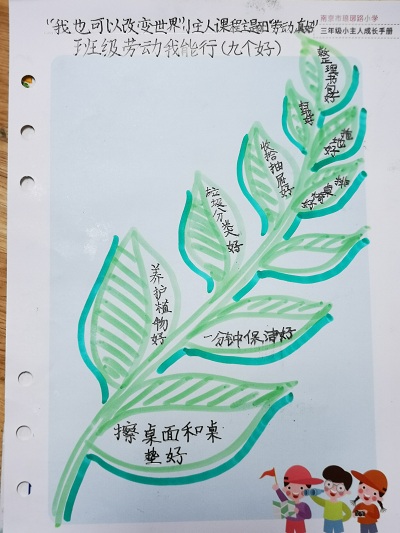 "我也可以改变世界"小主人课程主题四"劳动真好"
班级劳动我能行(九个好)
三年级小主人成长手册
整理书包好
扫地好
拖地好
排桌椅好
收拾抽屉好
垃圾分类好
养护植物好
一分钟保洁好
擦桌面和桌
垫好